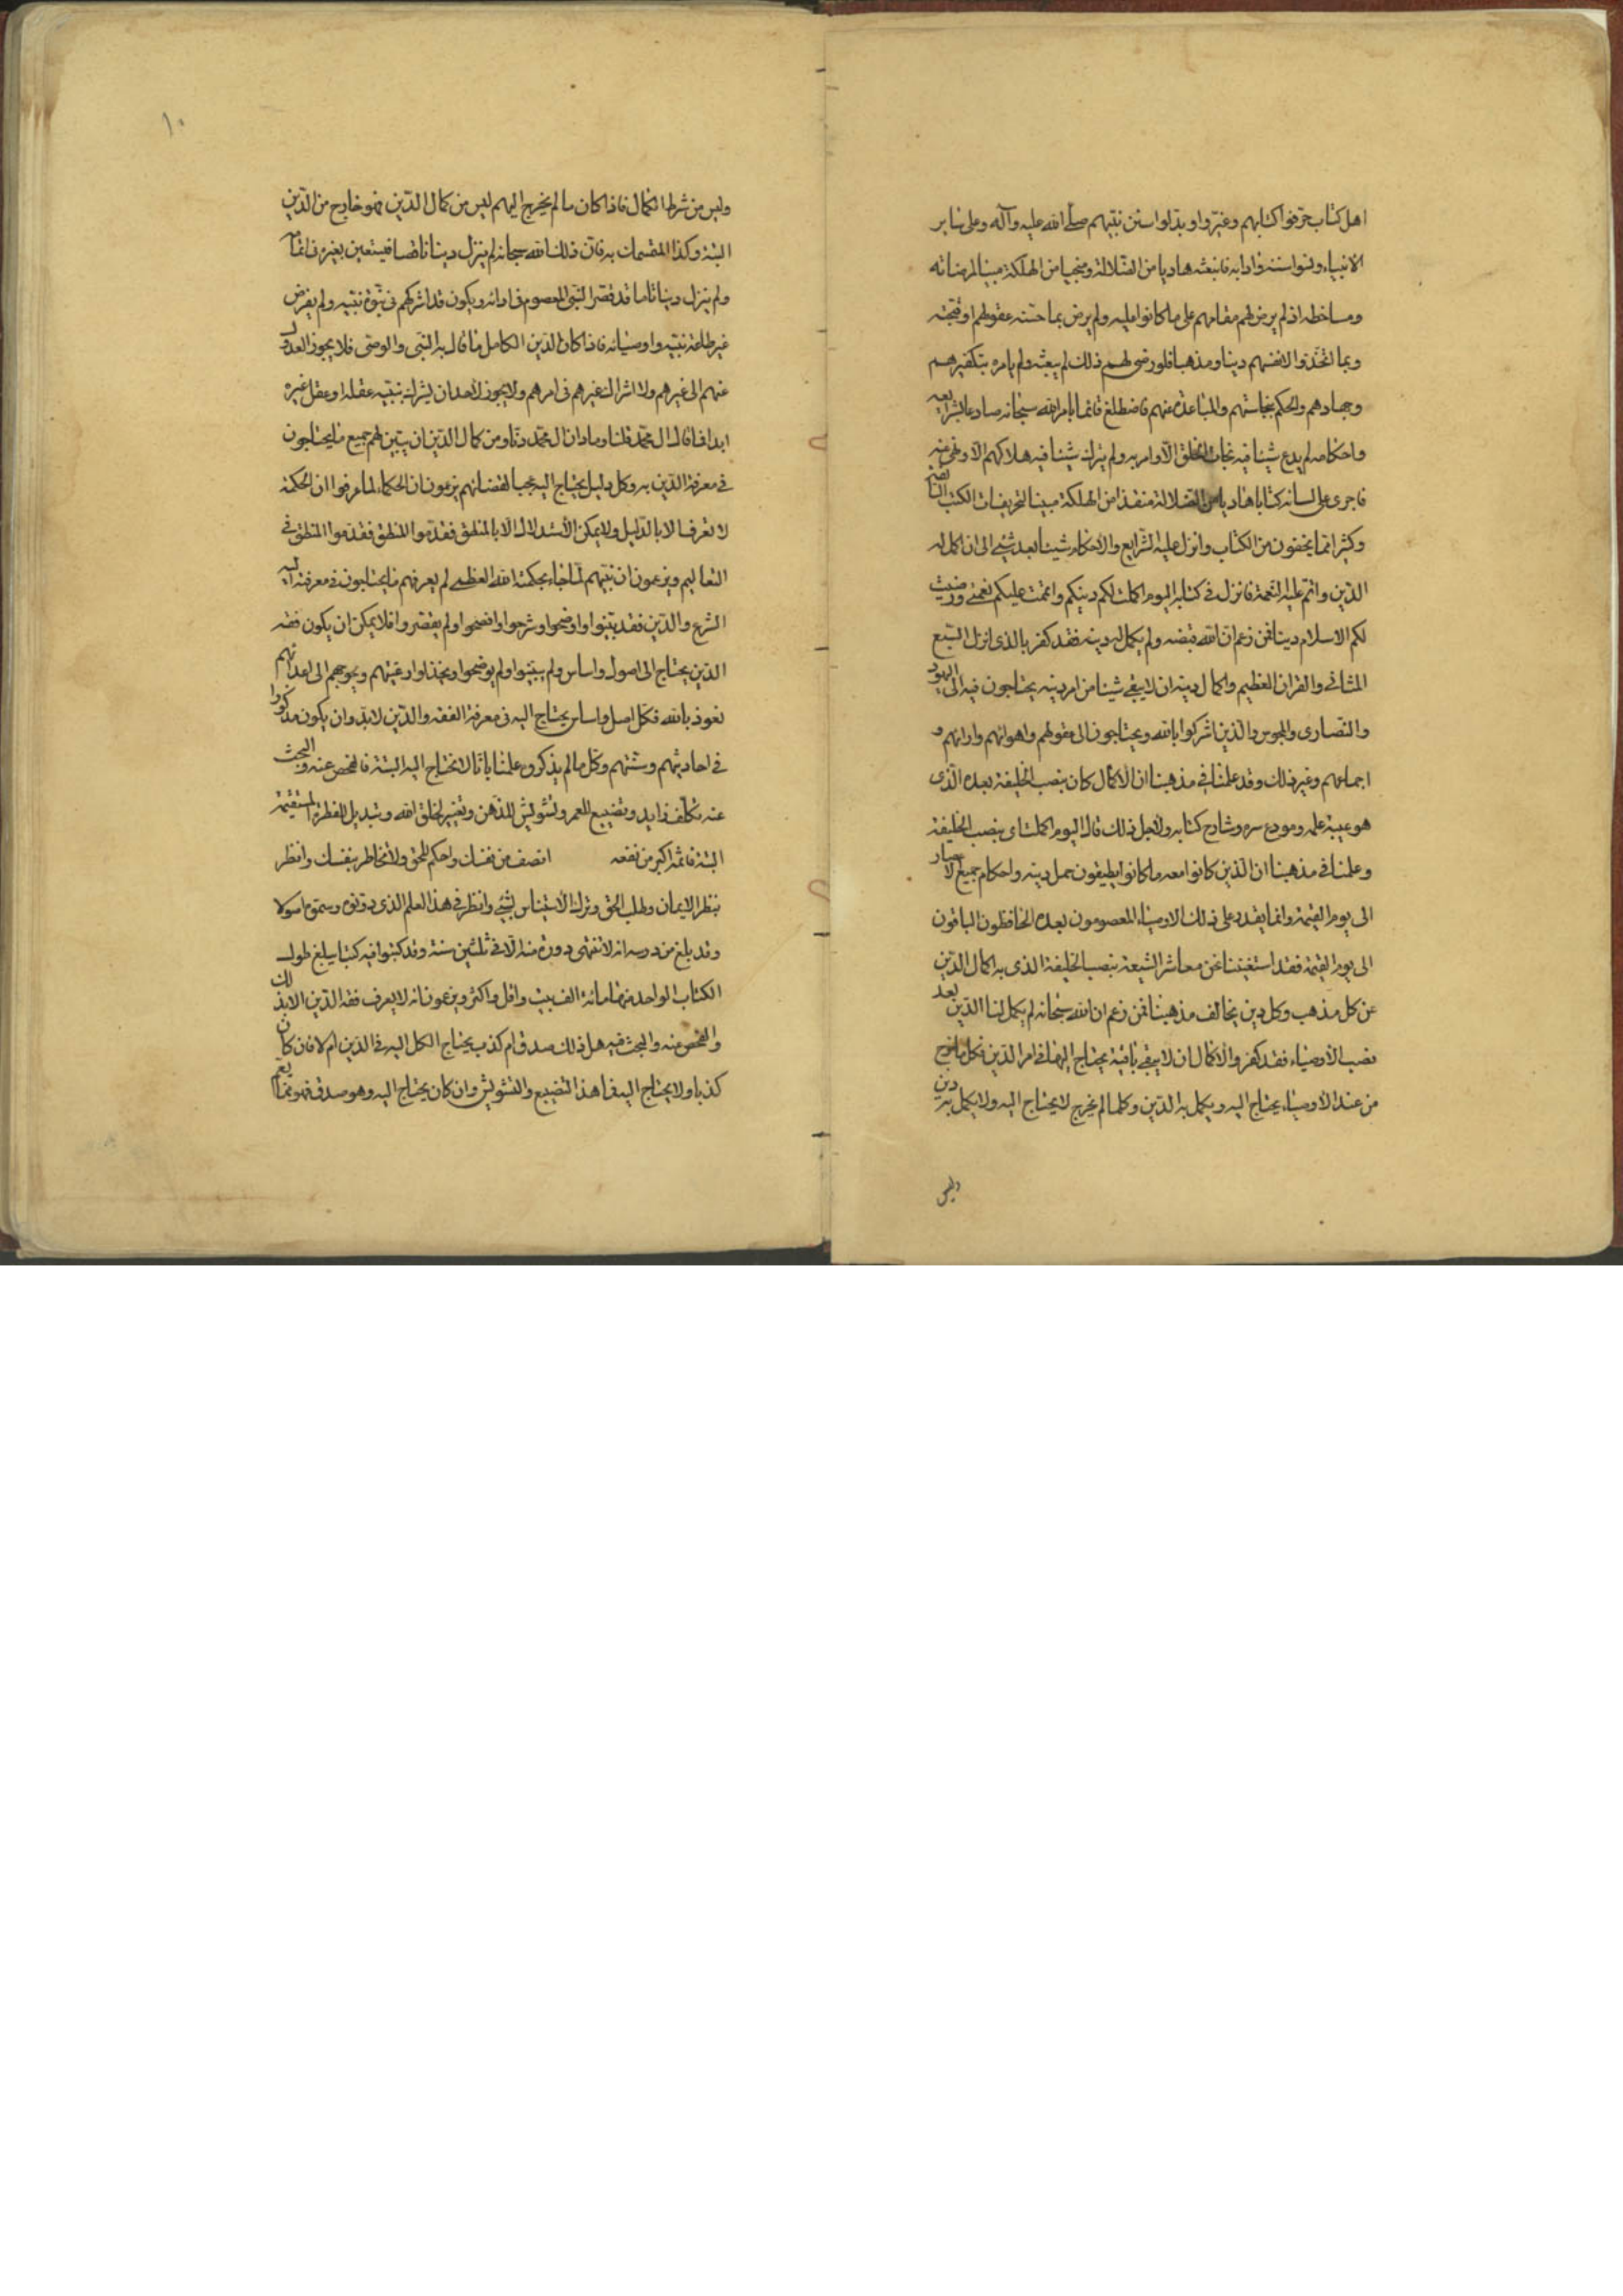 اهل كتاب حرفوا كتابهم وغيروا وبدلوا سنن نبيهم صلى الله عليه وآله وعلى ساير
الانبياء ونسوا سننه وادابه فانبعثه هاديا من الضلالة ومنجيا من الهلكة مبينا لمرضاته
ومساخطه اذ لم يرض لهم مقامهم على ما كانوا عليه ولم يرض بما حسنته عقولهم او قبحته
وبما اتخذوا لانفسهم دينا ومذهبا فلو رضى لهم ذلك لم يبعثه ولم يامره بتكفيرهم
وجهادهم والحكم بنجاستهم والمباعدة عنهم فاضطلع قائما بامر الله سبحانه صادعا بشرايعه
واحكامه لم يدع شيئا فيه نجات الخلق الا وامر به ولم يترك شيئا فيه هلاكهم الا ونهى عنه
فاجرى على لسانه كتابا هاديا من الضلالة منقذا من الهلكة مبينا لتحريفات الكتب
وكثير مما يخفون من الكتاب وانزل عليه الشرايع والاحكام شيئا بعد شئ الى ان اكمل له
الدين واتم عليه النعمة فانزل فى كتابه اليوم اكملت لكم دينكم واتممت عليكم نعمتى ورضيت
لكم الاسلام دينا فمن زعم ان الله قبضه ولم يكمل له دينه فقد كفر بالذى انزل السبع
المثانى والقران العظيم واكمال دينه ان لا يبقى شيئا من امر دينه يحتاجون فيه الى اليهود
والنصارى والمجوس والذين اشركوا بالله ويحتاجون الى عقولهم واهوائهم وارائهم و
اجماعهم وغير ذلك وقد علمنا فى مذهبنا ان الاكمال كان بنصب الخليفة بعده الذى
هو عيبة علمه ومودع سره وشارح كتابه ولاجل ذلك قال اليوم اكملت اى بنصب الخليفة
وعلمنا فى مذهبنا ان الذين كانوا معه ما كانوا يطيقون حمل دينه واحكام جميع الاعصار
الى يوم القيمة وانما يقدر على ذلك الاوصياء المعصومون بعده الحافظون الباقون
الى يوم القيمة فقد استغنينا نحن معاشر الشيعة بنصب الخليفة الذى به اكمال الدين
عن كل مذهب وكل دين يخالف مذهبنا فمن زعم ان الله سبحانه لم يكمل لنا الدين بعد
نصب الاوصياء فقد كفر والاكمال ان لا يبقى باقية يحتاج اليها فى امر الدين فكل ما خرج
من عند الاوصياء يحتاج اليه ويكمل به الدين وكلما لم يخرج لا يحتاج اليه ولا يكمل به دين
وليس
١٠
وليس من شرط الكمال فاذا كان ما لم يخرج اليهم ليس من كمال الدين فهو خارج من الدين
البتة وكذا المقسمات به فان ذلك الله سبحانه لم ينزل دينا ناقصا فيستعين بغيره فى اتمامه
ولم ينزل دينا تاما قد قصر النبى المعصوم فى ادائه ويكون قد اشركهم فى نبوة نبيه ولم يفرض
غير طاعة نبيه واوصيائه فاذا كان الدين الكامل ما قال به النبى والوصى فلا يجوز العدول
عنهم الى غيرهم ولا اشراك غيرهم فى امرهم ولا يجوز لاحد ان يشرك بنبيه عقله او عقل غيره
ابدا فما قال ال محمد قلنا وما دان ال محمد دنا ومن كمال الدين ان يبين لهم جميع ما يحتاجون
فى معرفة الدين به وكل دليل يحتاج اليه عجبا لقضائهم يزعمون ان الحكماء لما عرفوا ان الحكمة
لا تعرف الا بالدليل ولا يمكن الاستدلال الا بالمنطق فقدموا المنطق فقدموا المنطق فى
التعاليم ويزعمون ان نبيهم لما جاء بحكمة الله العظمى لم يعرفهم ما يحتاجون فى معرفته اليه
الشرع والدين فقد بينوا واوضحوا وشرحوا وافصحوا ولم يقصروا فلا يمكن ان يكون فقه
الدين يحتاج الى اصول واساس ولم يبينوا ولم يوضحوا ويخذلوا رعيتهم ويحوجهم الى اعدائهم
نعوذ بالله فكل اصل واساس يحتاج اليه فى معرفة الفقه والدين لابد وان يكون مذكورا
فى احاديثهم وسنتهم وكل ما لم يذكروه علمنا بانا لا نحتاج اليه البتة فالفحص عنه والبحث
عنه تكلف زايد وتضييع للعمر وتشويش للذهن وتغيير لخلق الله وتبديل للفطرة المستقيمة
البتة فاثمه اكبر من نفعه انصف من نفسك واحكم بالحق ولا تخاطر بنفسك وانظر
بنظر الايمان وطلب الحق وترك الاستيناس بشئ وانظر فى هذا العلم الذى دونوه وسموه اصولا
وقد بلغ من درسه انه لا تنتهى دورة منه الا فى ثلثين سنة وقد كتبوا فيه كتبا يبلغ طول
الكتاب الواحد منها مائة الف بيت واقل واكثر ويزعمون انه لا يعرف فقه الدين الا بذلك
والفحص عنه والبحث فيه هل ذلك صدق ام كذب يحتاج الكل اليه فى الدين ام لا فان كان
كذبا ولا يحتاج اليه فما هذا التضييع والتشويش وان كان يحتاج اليه وهو صدق فهو مما